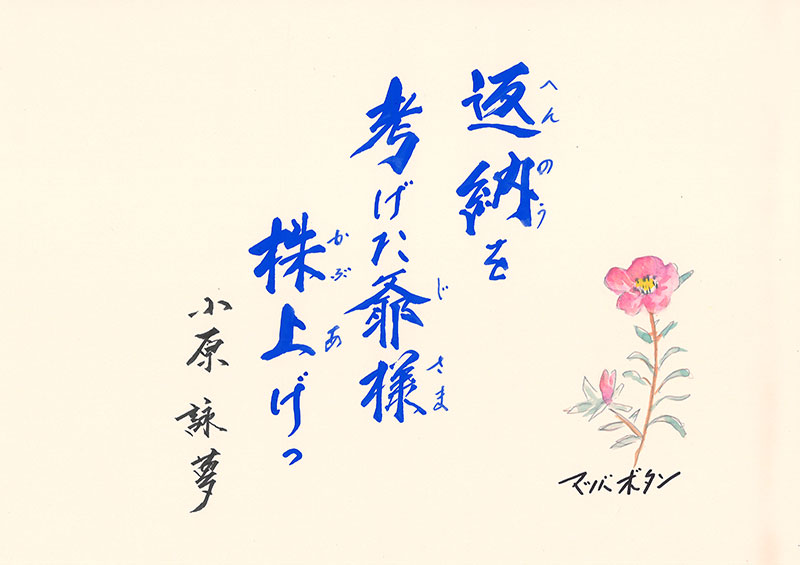 返納を
へんのう
考げた爺様
じさま
株上げっ
かぶあ
小原 詠夢
マツバボタン